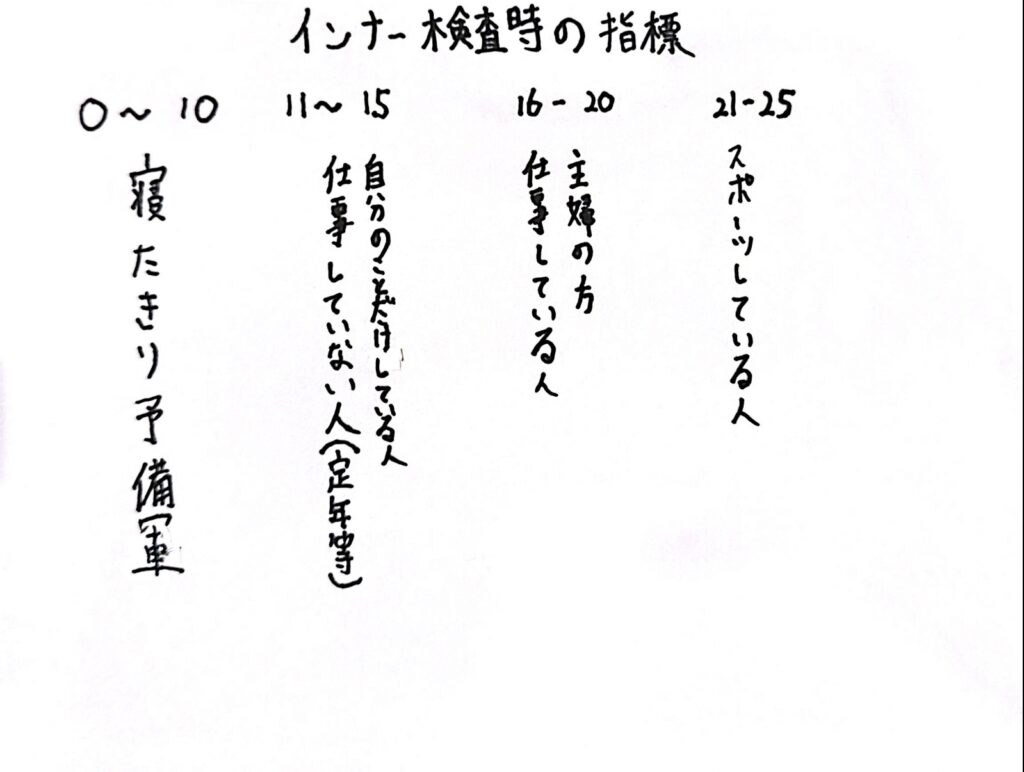 インナー検査時の指標
0～10
寝たきり予備軍
11～15
自分のことだけしている人
仕事していない人(定年等)
16-20
主婦の方
仕事している人
21-25
スポーツしている人